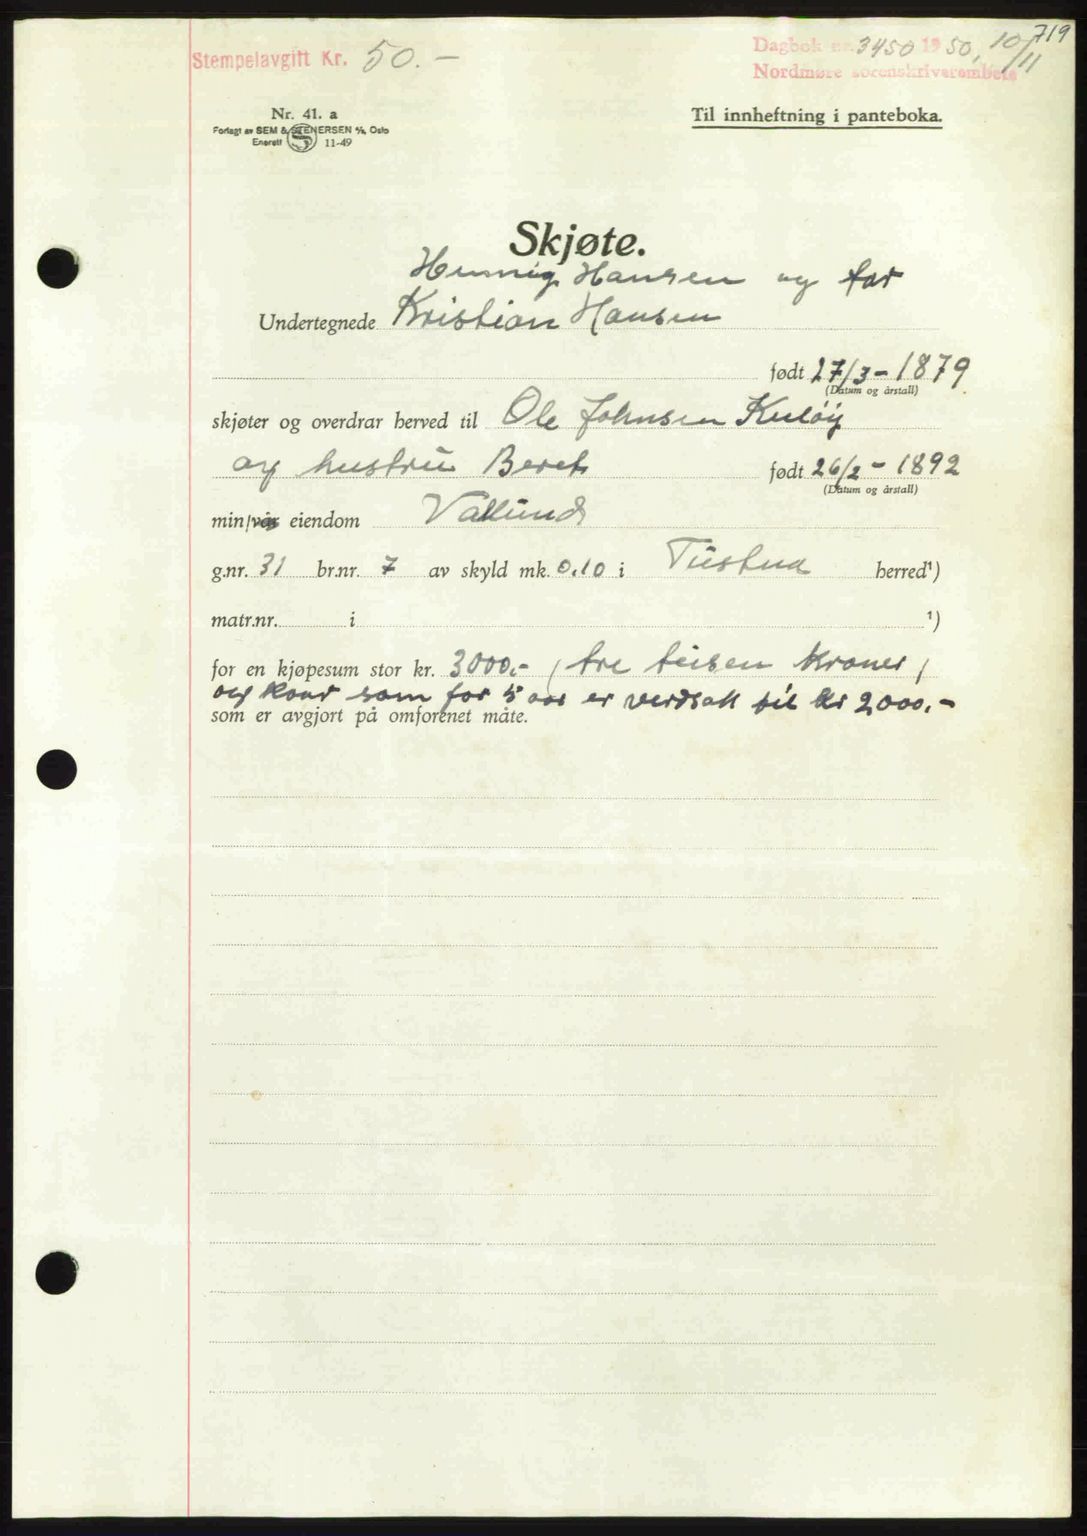 719
Stempelavgift Kr. 50.-
Dagbok nr. 3450 1950, 10/11
Nordmøre sorenskriverembete
Nr. 41. a
Forlagt av SEM & STENERSEN A/S, Oslo
Enerett 11-49
Til innheftning i panteboka.
Skjøte.
Hennig Hansen og far
Undertegnede Kristian Hansen
født 27/3 - 1879
(Datum og årstall)
skjøter og overdrar herved til Ole Johnsen Kuløy
og hustru Beret født 26/2 - 1892
(Datum og årstall)
min/vår eiendom Vallund
g.nr. 31 br.nr. 7 av skyld mk. 0.10 i Tustna herred¹)
matr.nr. i ¹)
for en kjøpesum stor kr. 3000.- (tre tusen kroner)
og som for 5 aar er verdsatt til kr 2000.-
som er avgjort på omforenet måte.